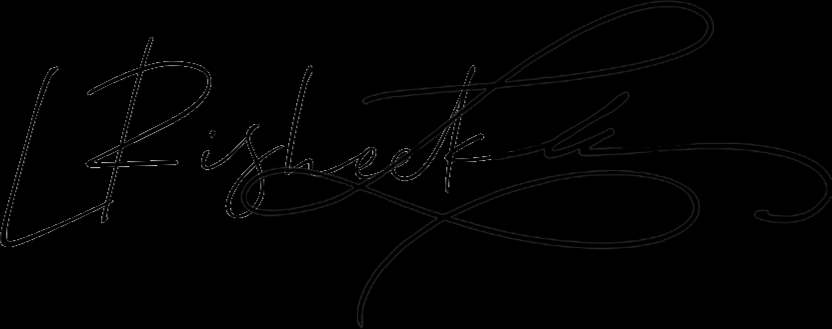 L Risheek